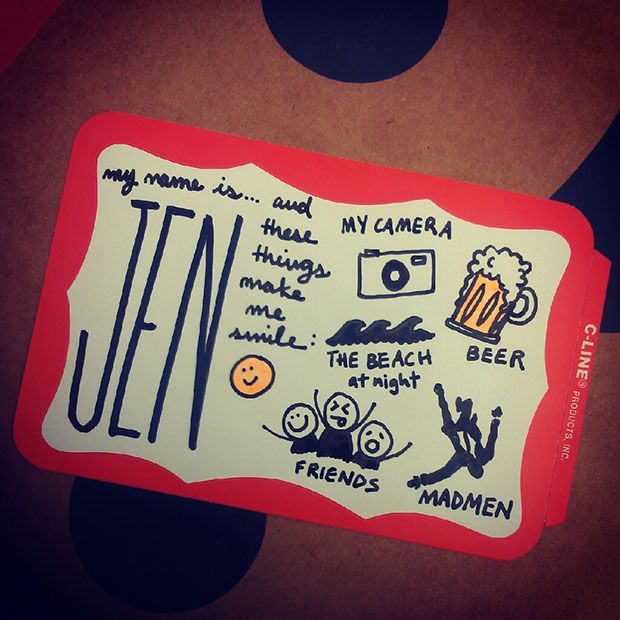 my name is... and
JEN
these
things
make
me
smile:
MY CAMERA
BEER
THE BEACH
at night
FRIENDS
MADMEN
C-LINE® PRODUCTS, INC.